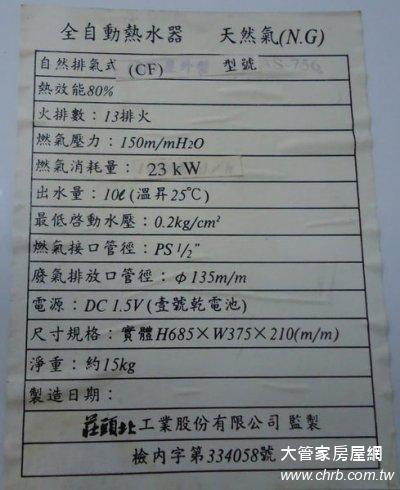 全自動熱水器 天然氣(N.G)
自然排氣式 (CF) 型號
熱效能80%
火排數：13排火
燃氣壓力：150m/mH2O
燃氣消耗量：23 kW
出水量：10ℓ (溫昇25℃)
最低啓動水壓：0.2kg/cm²
燃氣接口管徑：PS 1/2"
廢氣排放口管徑：φ135m/m
電源：DC 1.5V (壹號乾電池)
尺寸規格：實體H685×W375×210(m/m)
淨重：約15kg
製造日期：
莊頭北工業股份有限公司 監製
檢內字第334058號
大管家房屋網
www.chrb.com.tw